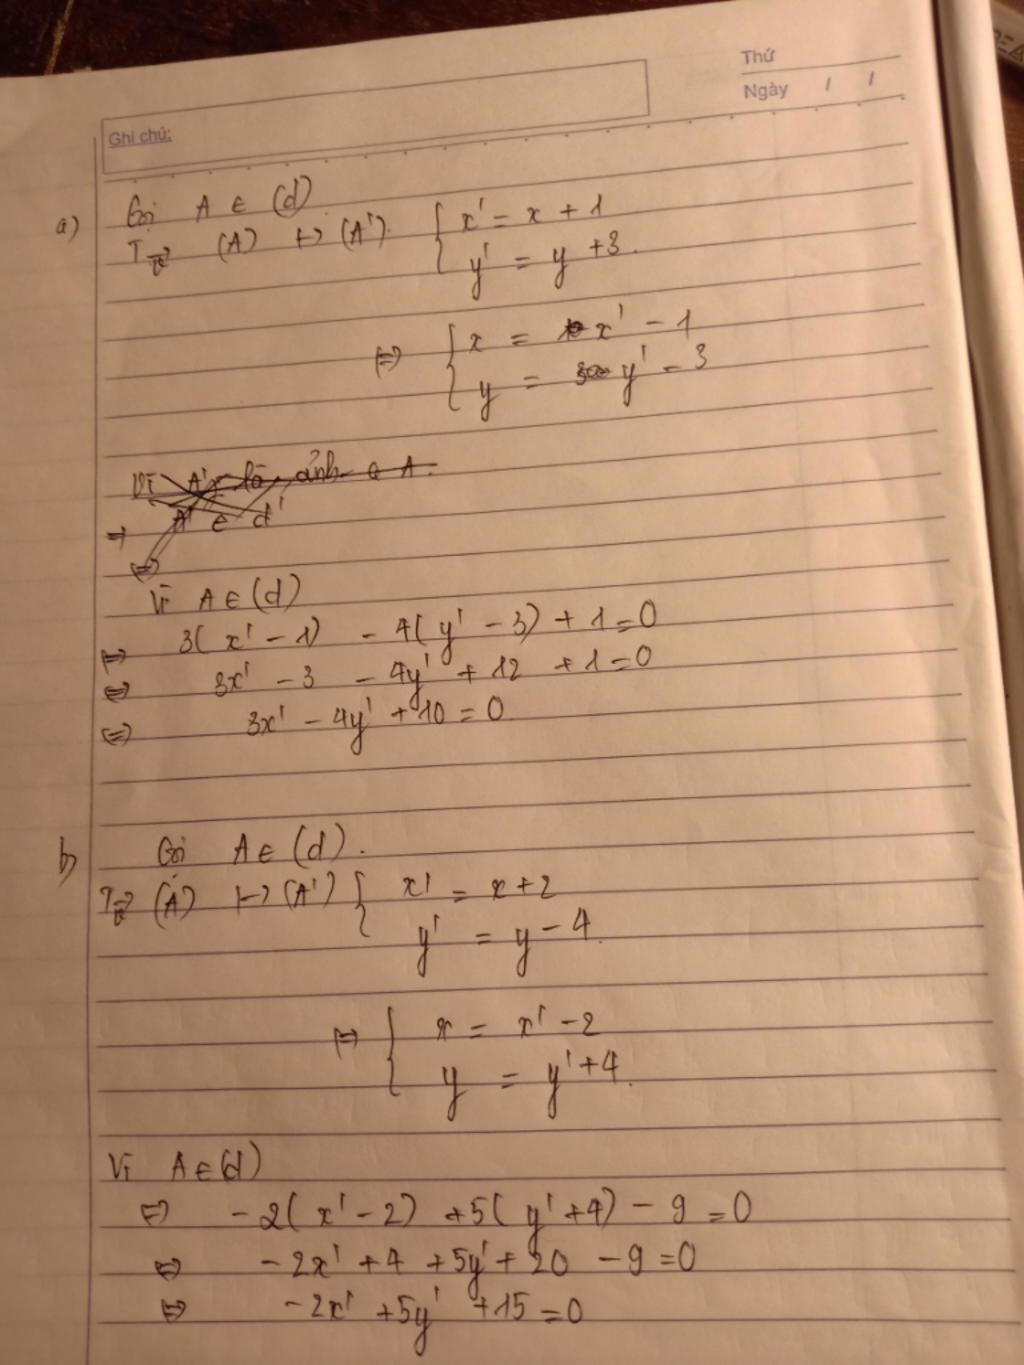 Thứ
Ngày / /
Ghi chú:
a) Gọi A ∈ (d)
T_v⃗ (A) ↦ (A'). { x' = x + 1
y' = y + 3.
⇔ { x = x' - 1
y = y' - 3
Vì A' là ảnh A.
⇒ A' ∈ d'
⇔
Vì A ∈ (d)
⇔ 3(x' - 1) - 4(y' - 3) + 1 = 0
⇔ 3x' - 3 - 4y' + 12 + 1 = 0
⇔ 3x' - 4y' + 10 = 0
b) Gọi A ∈ (d).
T_v⃗ (A) ↦ (A') { x' = x + 2
y' = y - 4.
⇔ { x = x' - 2
y = y' + 4.
Vì A ∈ (d)
⇔ -2(x' - 2) + 5(y' + 4) - 9 = 0
⇔ -2x' + 4 + 5y' + 20 - 9 = 0
⇔ -2x' + 5y' + 15 = 0